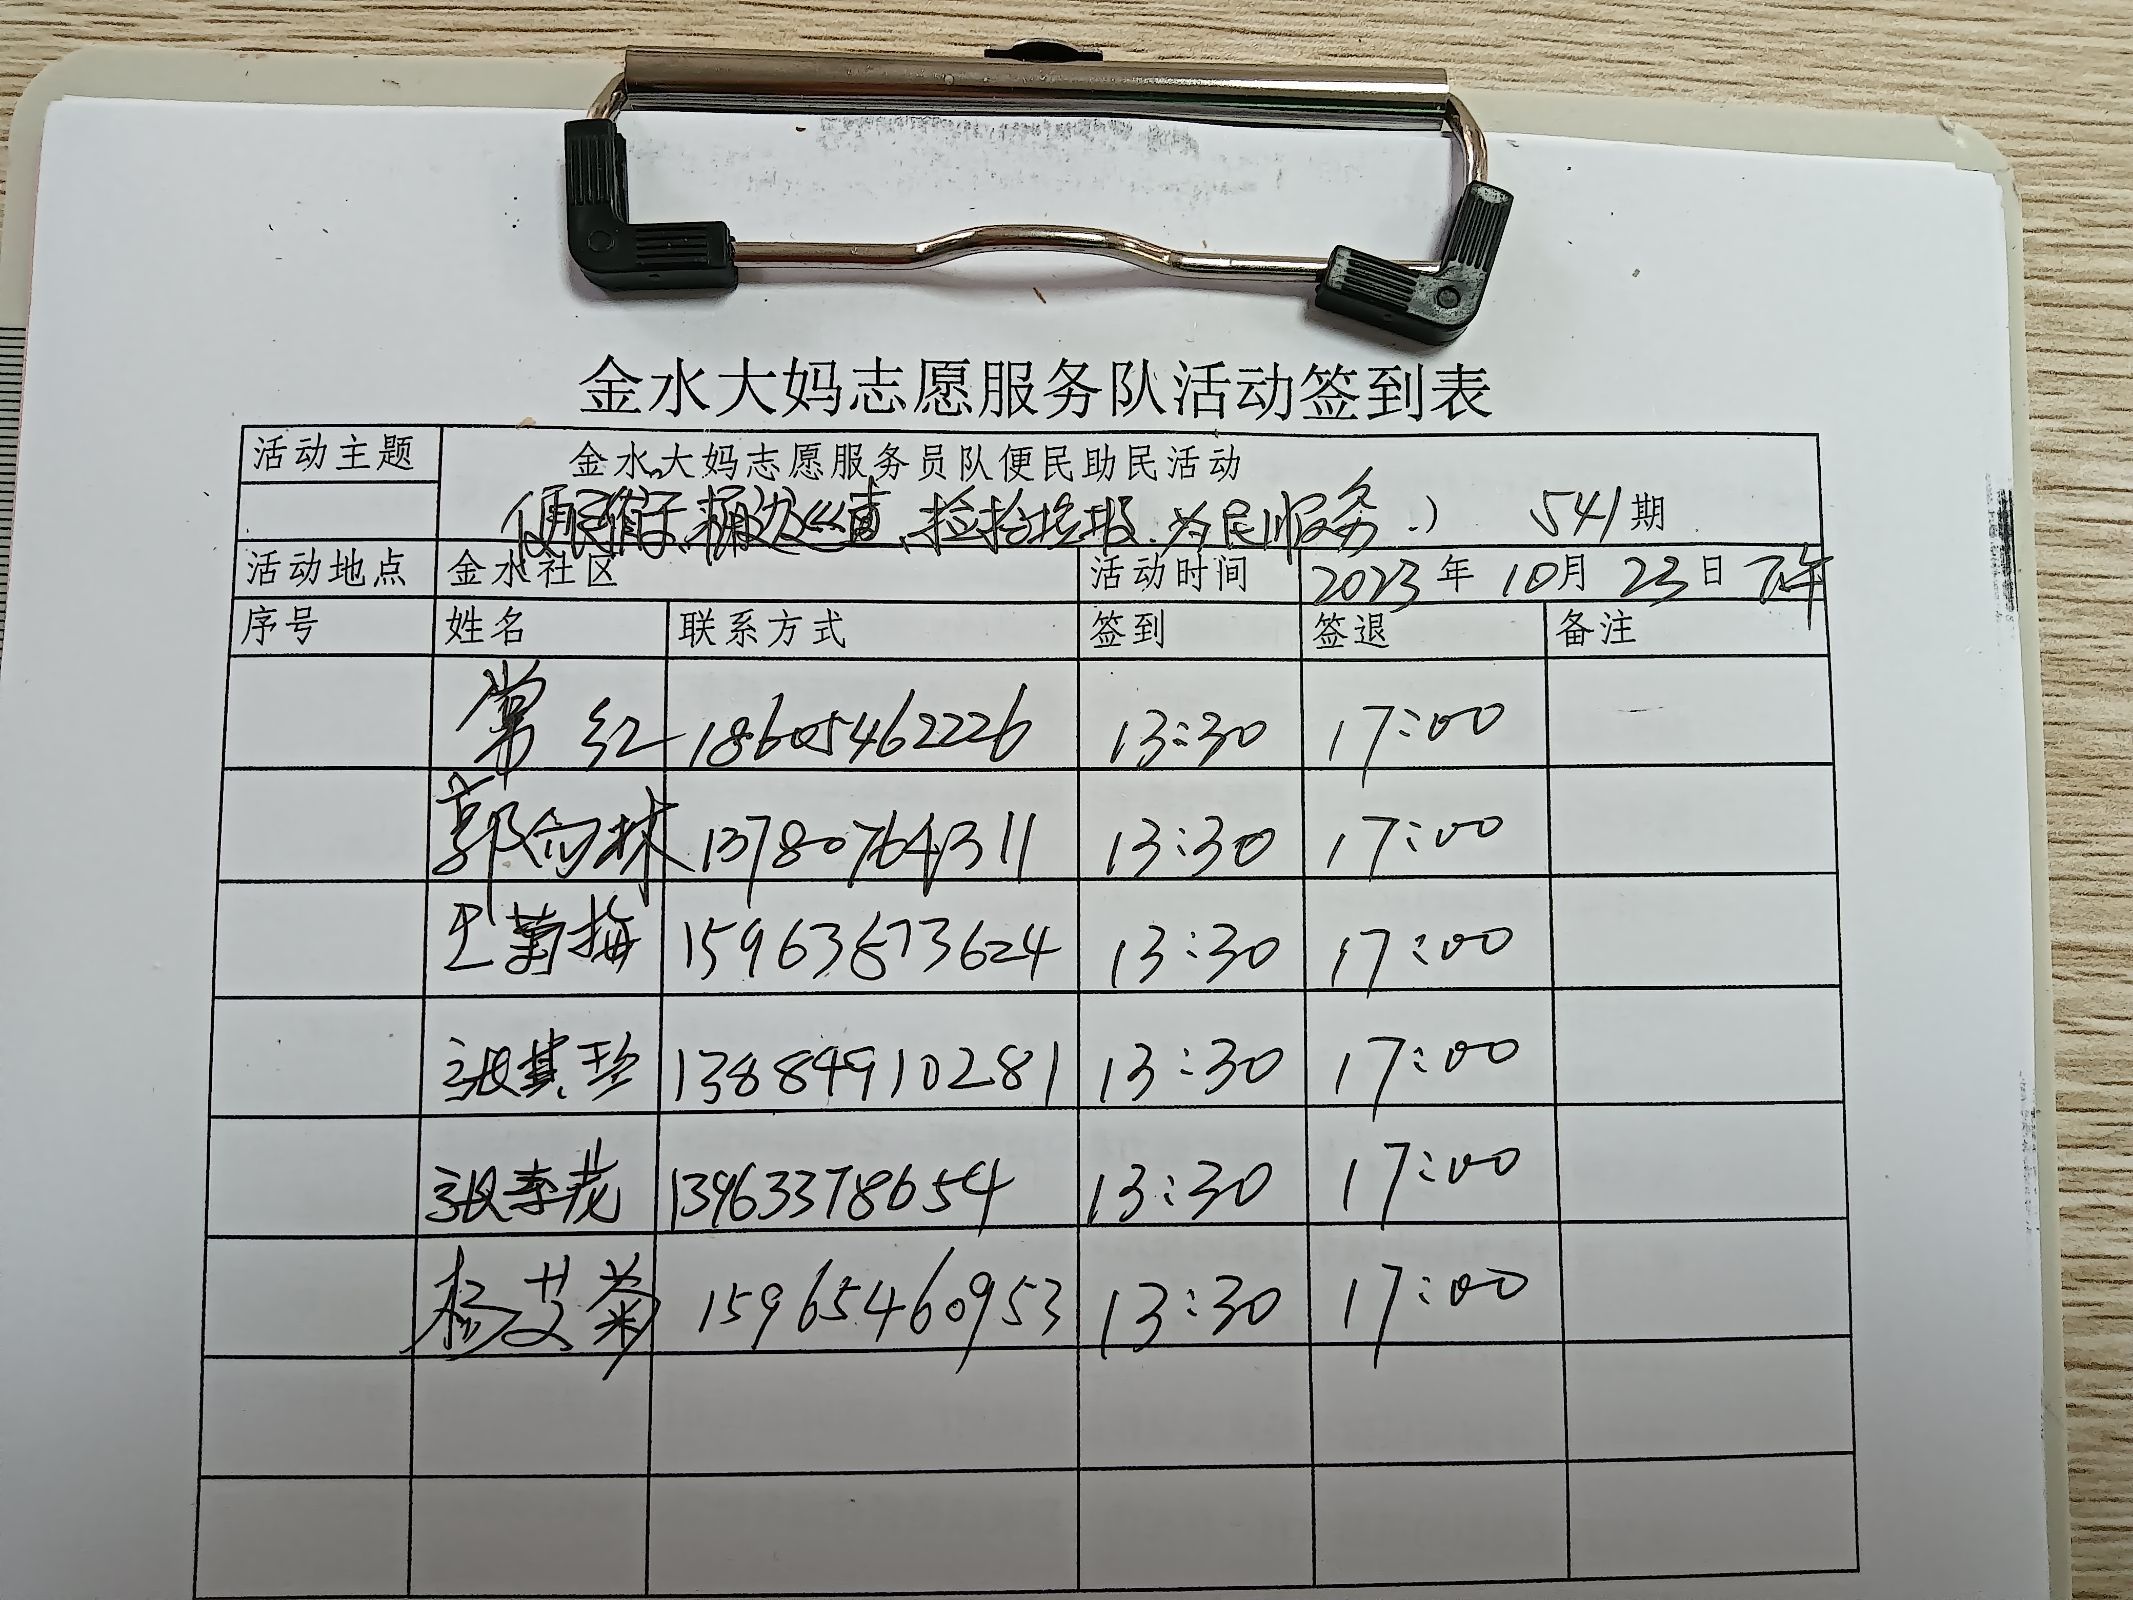 金水大妈志愿服务队活动签到表
活动主题 金水大妈志愿服务员队便民助民活动
便民 巡查、捡拾垃圾、为民服务.） 541期
活动地点 金水社区 活动时间 2023年 10月 23日 下午
序号 姓名 联系方式 签到 签退 备注
常红 18605462226 13:30 17:00
郭向林 13780764311 13:30 17:00
王菊梅 15963873624 13:30 17:00
张其珍 13884910281 13:30 17:00
张 13963378654 13:30 17:00
杨艾菊 15965460953 13:30 17:00